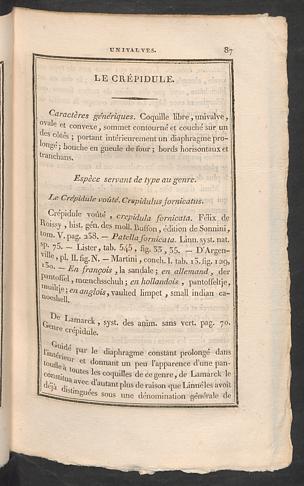 UNIVALVES. 87
LE CRÉPIDULE.
Caractères génériques. Coquille libre, univalve,
ovale et convexe, sommet contourné et couché sur un
des côtés; portant intérieurement un diaphragme pro-
longé; bouche en gueule de four; bords horisontaux et
tranchans.
Espèce servant de type au genre.
Le Crépidule voûté. Crepidulus fornicatus.
Crépidule voûté, crepidula fornicata. Félix de
Roissy, hist. gén. des moll. Buffon, édition de Sonnini,
tom. V. pag. 238. — Patella fornicata. Linn. syst. nat.
sp. 75. — Lister, tab. 545, fig. 33, 35. — D'Argen-
ville, pl. II. fig. N. — Martini, conch. I. tab. 13. fig. 129,
130. — En français, la sandale; en allemand, der
pantoffel, mœnchsschuh; en hollandois, pantoffeltje,
muiltje; en anglois, vaulted limpet, small indian ca-
noeshell.
De Lamarck, syst. des anim. sans vert. pag. 70.
Genre crépidule.
Guidé par le diaphragme constant prolongé dans
l'intérieur et donnant un peu l'apparence d'une pan-
toufle à toutes les coquilles de ce genre, de Lamarck le
constitua avec d'autant plus de raison que Linné les avoit
déjà distinguées sous une dénomination générale de